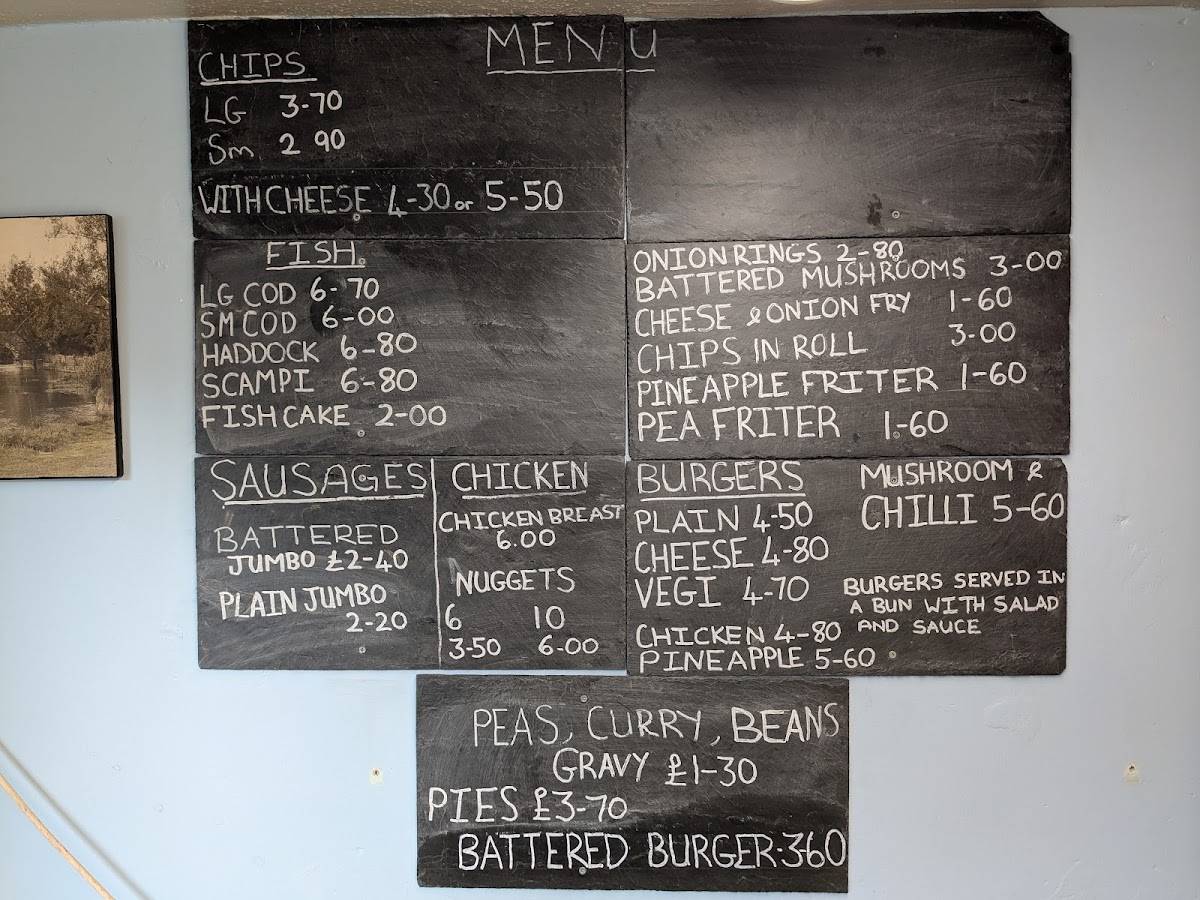 MENU
CHIPS
LG 3-70
Sm 2 90
WITH CHEESE 4-30 or 5-50
FISH
LG COD 6-70
SM COD 6-00
HADDOCK 6-80
SCAMPI 6-80
FISH CAKE 2-00
ONION RINGS 2-80
BATTERED MUSHROOMS 3-00
CHEESE & ONION FRY 1-60
CHIPS IN ROLL 3-00
PINEAPPLE FRITER 1-60
PEA FRITER 1-60
SAUSAGES
BATTERED
JUMBO £2-40
PLAIN JUMBO
2-20
CHICKEN
CHICKEN BREAST
6.00
NUGGETS
6 10
3-50 6-00
BURGERS
PLAIN 4-50
CHEESE 4-80
VEGI 4-70
CHICKEN 4-80
PINEAPPLE 5-60
MUSHROOM &
CHILLI 5-60
BURGERS SERVED IN
A BUN WITH SALAD
AND SAUCE
PEAS, CURRY, BEANS
GRAVY £1-30
PIES £3-70
BATTERED BURGER-3-60